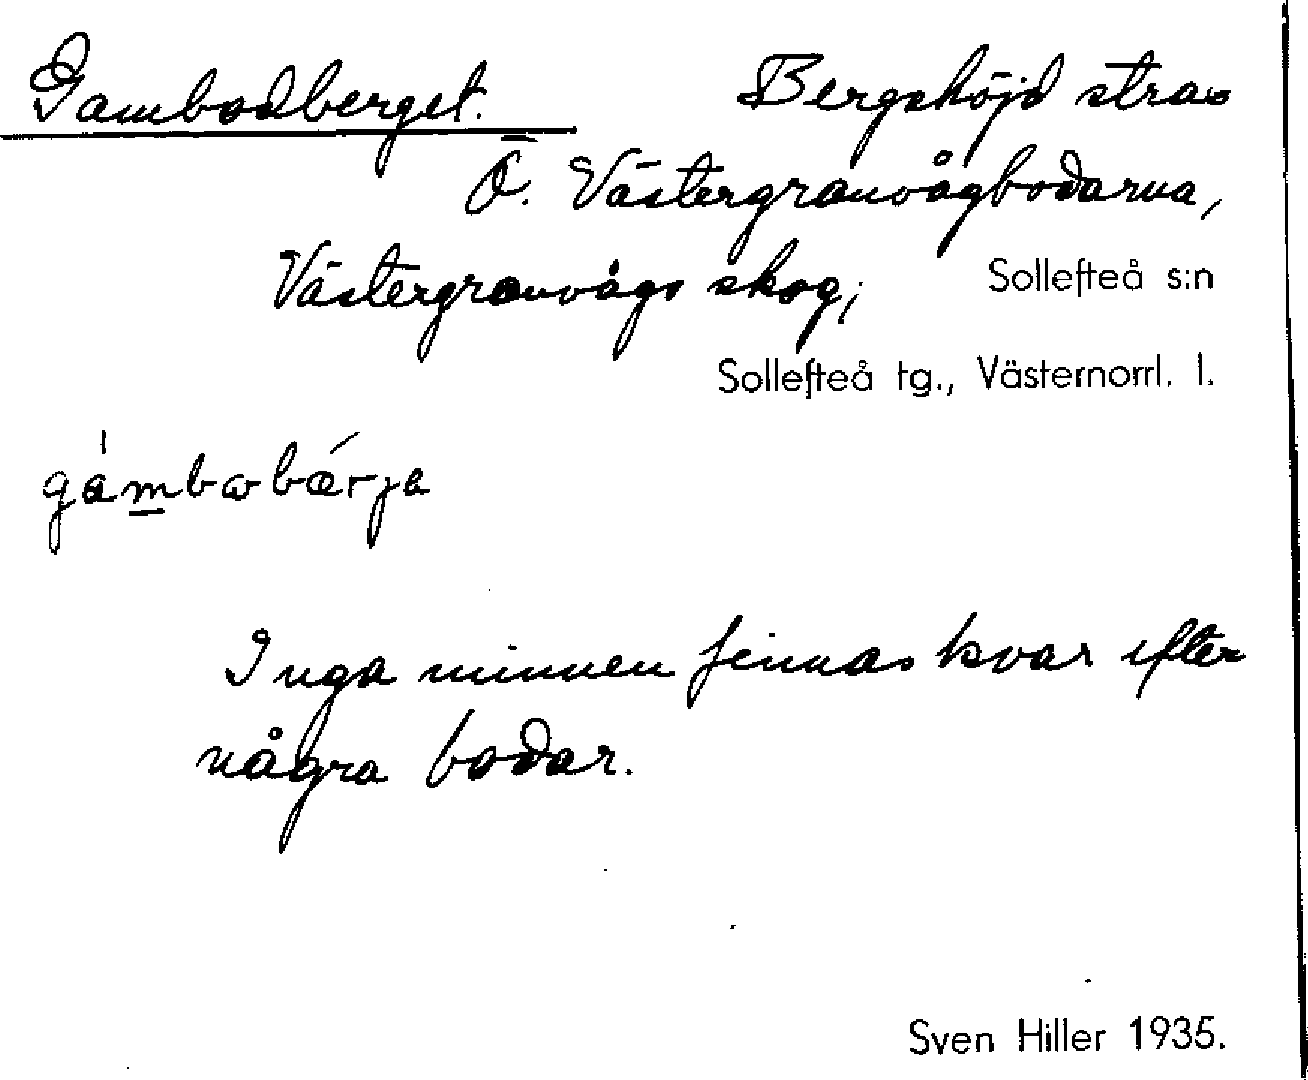 Gambodberget. Bergshöjd strax
Ö. Västergranvågbodarna,
Västergranvågs skog; Sollefteå s:n
Sollefteå tg., Västernorrl. l.
gámbωbǽrja
Inga minnen finnas kvar efter
några bodar.
Sven Hiller 1935.